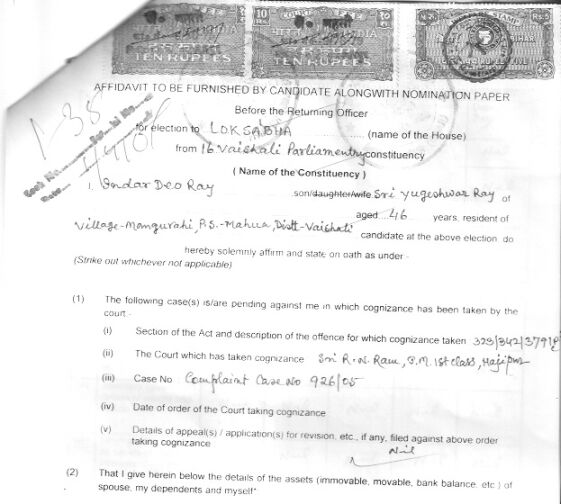 COURT
INDIA
TEN RUPEES
10 Rs.
COURT
INDIA
TEN RUPEES
STAMP
Rs.5
BIHAR
AFFIDAVIT TO BE FURNISHED BY CANDIDATE ALONGWITH NOMINATION PAPER
Before the Returning Officer
for election to LOKSABHA (name of the House)
from 16 Vaishali Parliamentry constituency
( Name of the Constituency )
I, Indar Deo Ray son/daughter/wife Sri Yugeshwar Ray of
aged 46 years, resident of
Village-Mangurahi, P.S.-Mahua, Distt-Vaishali
candidate at the above election, do
hereby solemnly affirm and state on oath as under -
(Strike out whichever not applicable)
(1) The following case(s) is/are pending against me in which cognizance has been taken by the
court -
(i) Section of the Act and description of the offence for which cognizance taken 323/342/379
(ii) The Court which has taken cognizance Sri R.N. Ram, J.M. 1st Class, Hajipur
(iii) Case No Complaint Case No 926/05
(iv) Date of order of the Court taking cognizance
(v) Details of appeal(s) / application(s) for revision, etc., if any, filed against above order
taking cognizance
Nil
(2) That I give herein below the details of the assets (immovable, movable, bank balance, etc ) of
spouse, my dependents and myself*